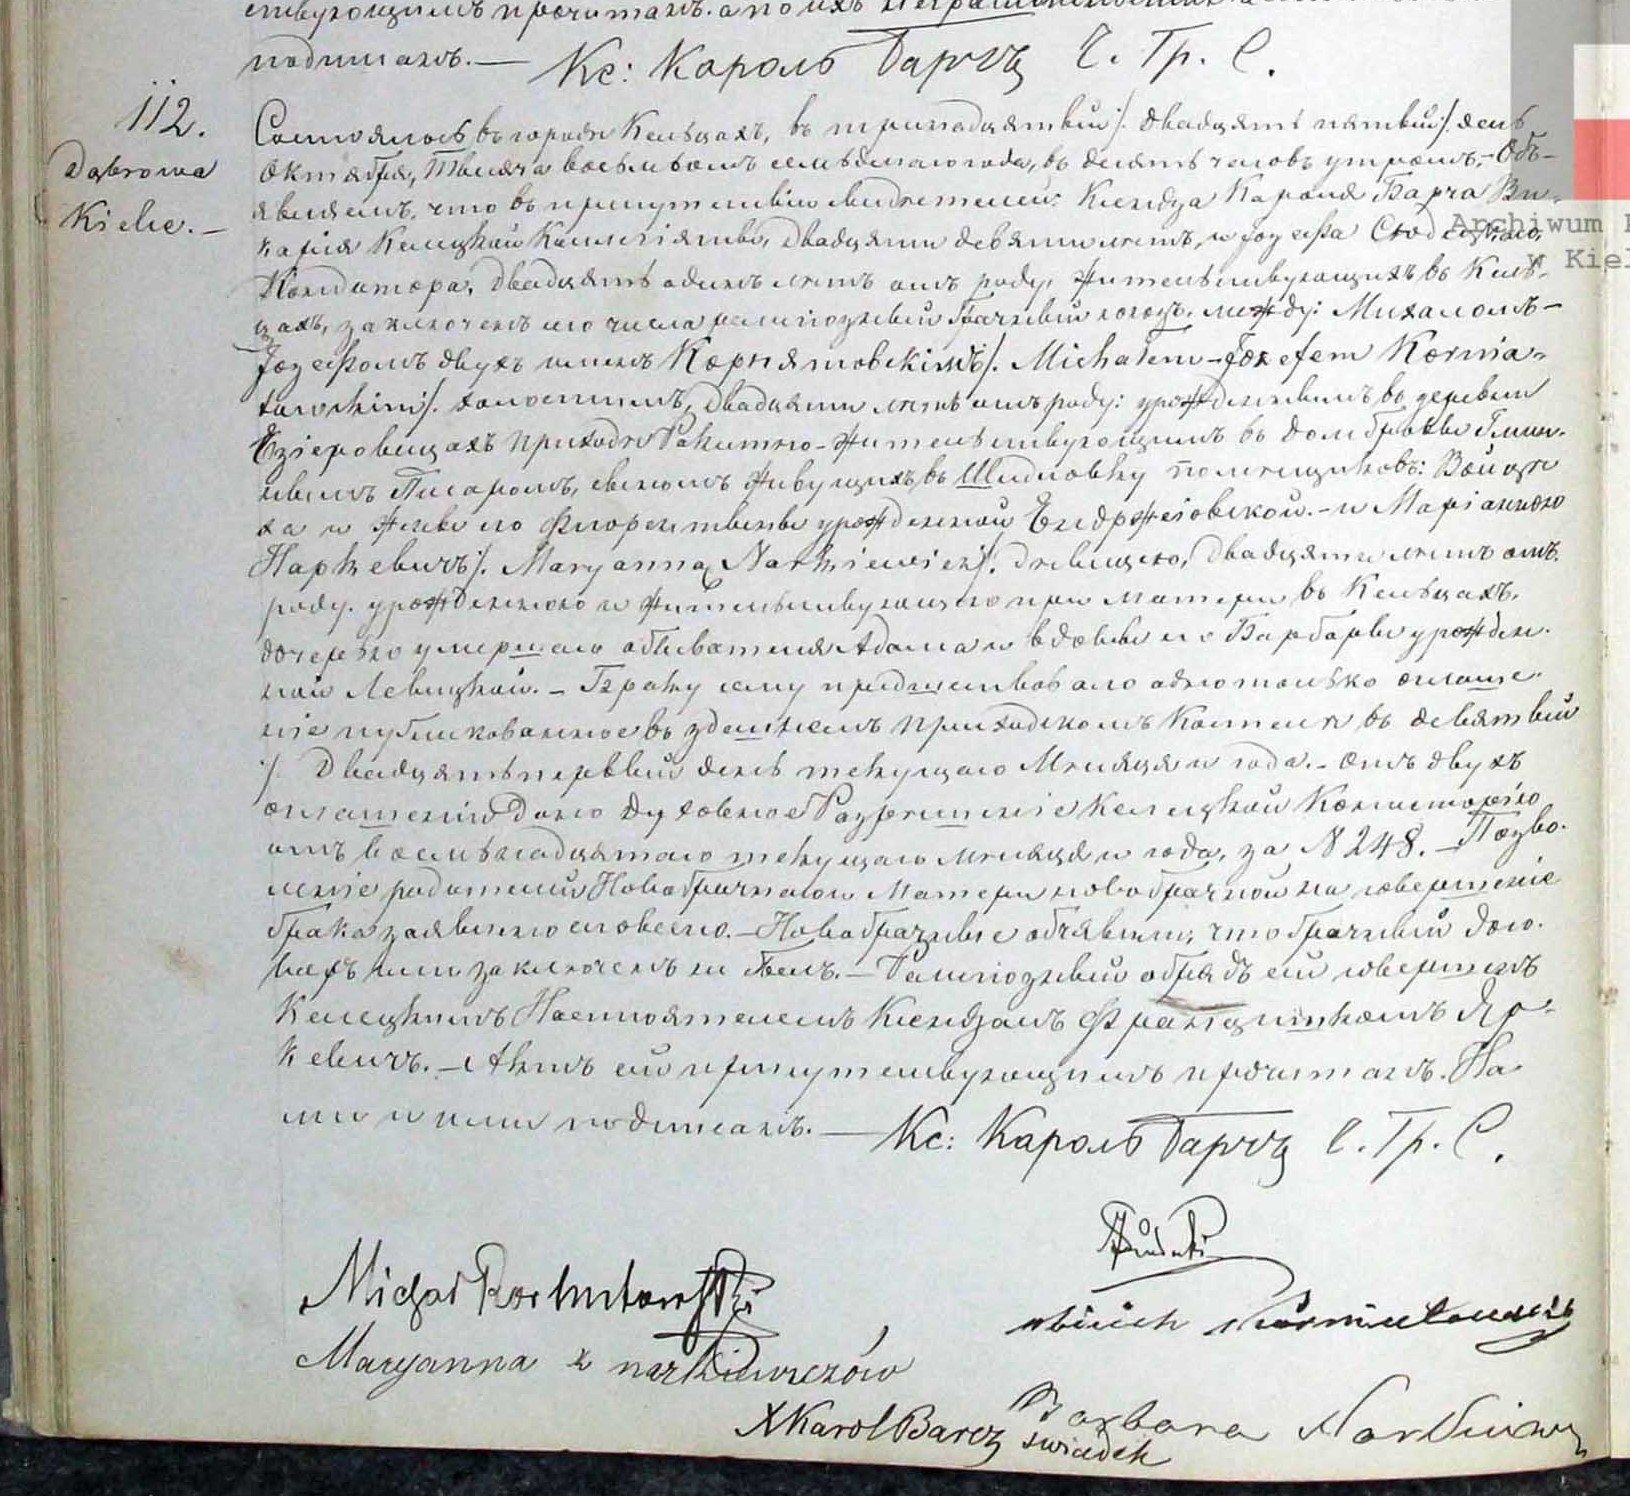 подписанъ. — Кс: Кароль Барчъ Ч. Гр. С.
112.
Dąbrowa
Kielce. —
Состоялось въ городѣ Кельцахъ, въ тринадцатый /. двадцать пятый /. день
Октября, тысяча восемьсотъ семьдесятаго года, въ десять часовъ утромъ. — Объ-
являемъ, что въ присутствіи свидѣтелей: Ксендза Кароля Барча Ви-
карія Келецкой Коллегіяты, двадцати девяти лѣтъ, и Іозефа
Кондитора, двадцать одинъ лѣтъ отъ роду, жительствующихъ въ Кель-
цахъ, заключенъ сего числа религіозный брачный союзъ, между: Михаломъ —
Іозефомъ двухъ именъ Корнятовскимъ /. Michałem - Józefem Kornia-
towskim /. холостымъ, двадцати лѣтъ отъ роду: урожденнымъ въ деревни
приходѣ Ракитно - жительствующимъ въ Домбровы Гмин-
нымъ Писаромъ, сыномъ живущихъ въ Шидловку помещиковъ: Войцѣ-
ха и жены его Флорентыны урожденной Ендржеіовской. — и Маріанною
Наркевичъ /. Maryanną Narkiewicz /. дѣвицею, двадцати лѣтъ отъ
роду. урожденною и жительствующею при матери въ Кельцахъ.
дочерью умершаго обывателя Адама и вдовы его Барбары урожден-
ной Левицкой. — Браку сему предшествовало одно только оглаше-
ніе публикованное въ здѣшнемъ приходскомъ костелѣ въ девятый
/. Двадцать первый день текущаго Мѣсяця и года. — отъ двухъ
оглашеній дано Духовное Разрешеніе Келецкой Консисторіею
отъ восемьнадцятаго текущаго мѣсяця и года, за N 248. — Позво-
леніе родителей Новобрачнаго и Матери новобрачной на совершеніе
брака заявлено словесно. — Новобрачные объявили, что брачный дого-
воръ ими заключенъ не былъ. — Религіозный обрядъ сей совершенъ
Келецкимъ Настоятелемъ Ксендзомъ Францишкомъ Яр-
кевичъ. — Актъ сей присутствующимъ прочитанъ. На-
ми и ими подписанъ. — Кс: Кароль Барчъ Ч. Гр. С.
Michał Korniatowski
Maryanna z narkiewiczów
X Karol Barcz świadek
Barbara